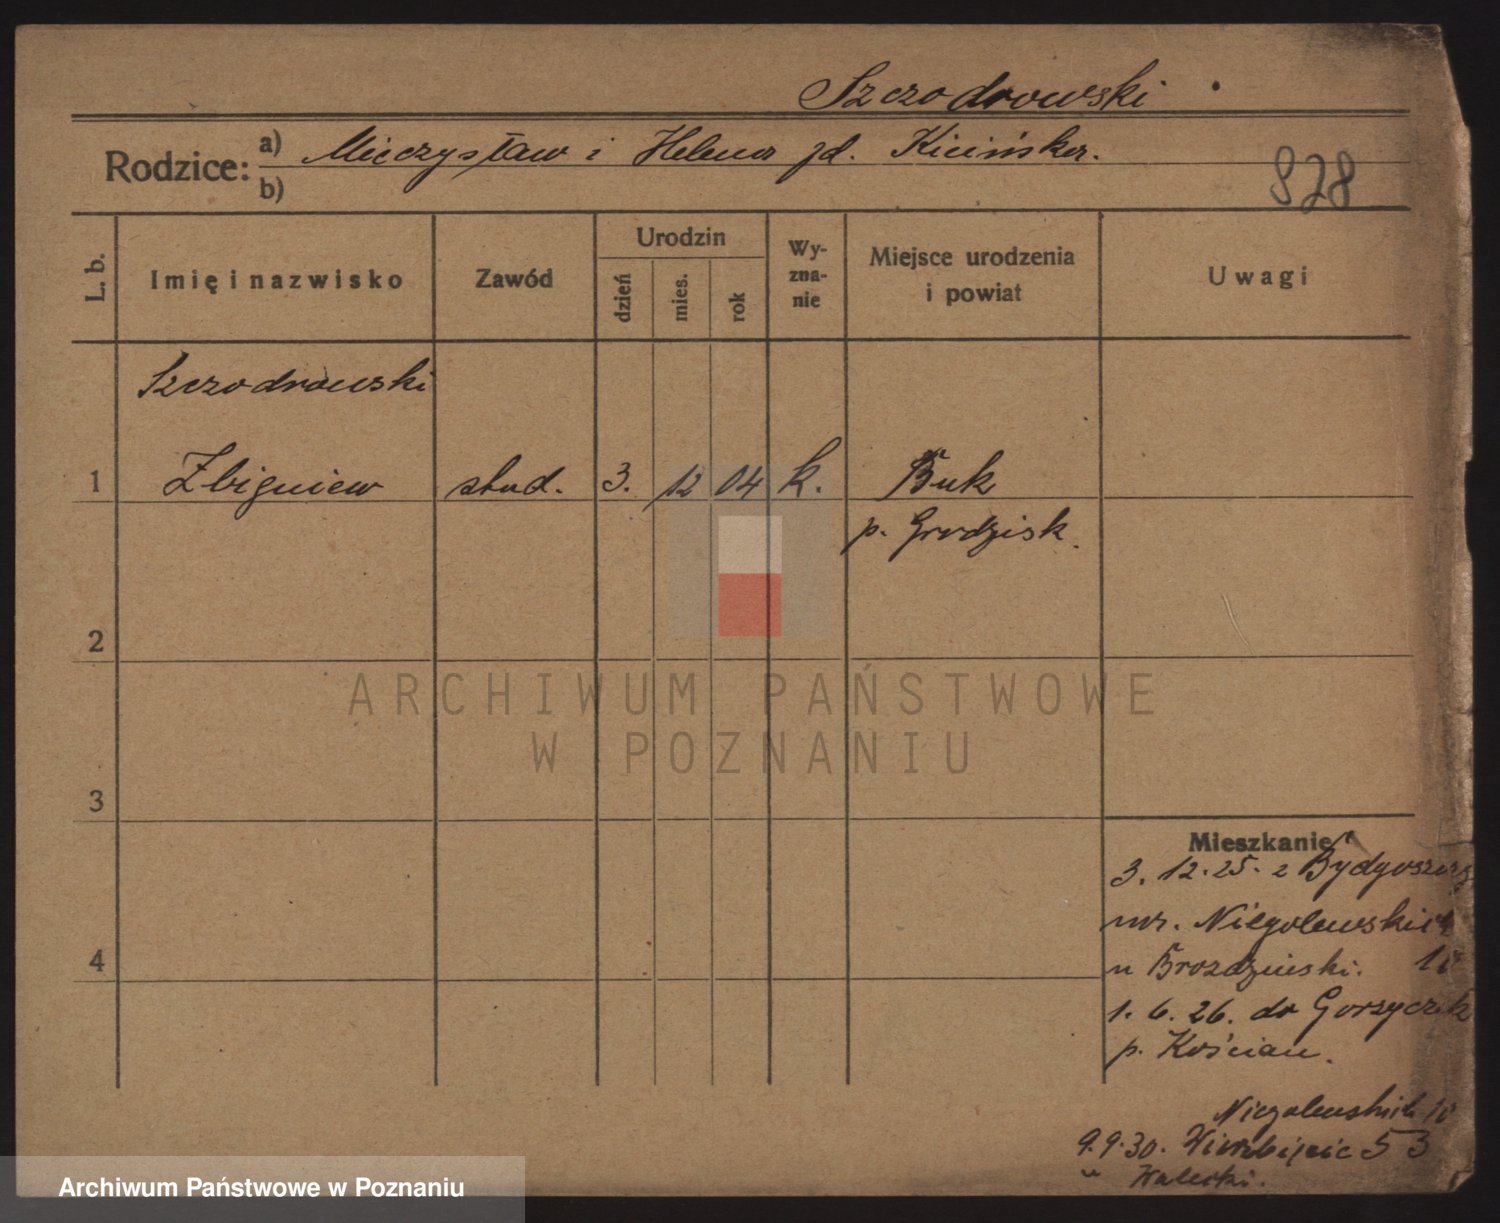 Szczodrowski
Rodzice: a) Mieczysław i Helena zd. Kicińska.
b)
828
L. b. Imię i nazwisko Zawód Urodzin dzień mies. rok Wy-zna-nie Miejsce urodzenia i powiat Uwagi
Szczodrowski
1 Zbigniew stud. 3. 12 04 k. Buk
p. Grodzisk.
2
ARCHIWUM PAŃSTWOWE
W POZNANIU
3
Mieszkanie
3. 12. 25. z Bydgoszczy
Niegolewskich
4 u
1. 6. 26. do Gorzyczek
p. Kościan.
Niegolewskich
9. 9. 30. Wierzbięcic 53
u Walecki.
Archiwum Państwowe w Poznaniu